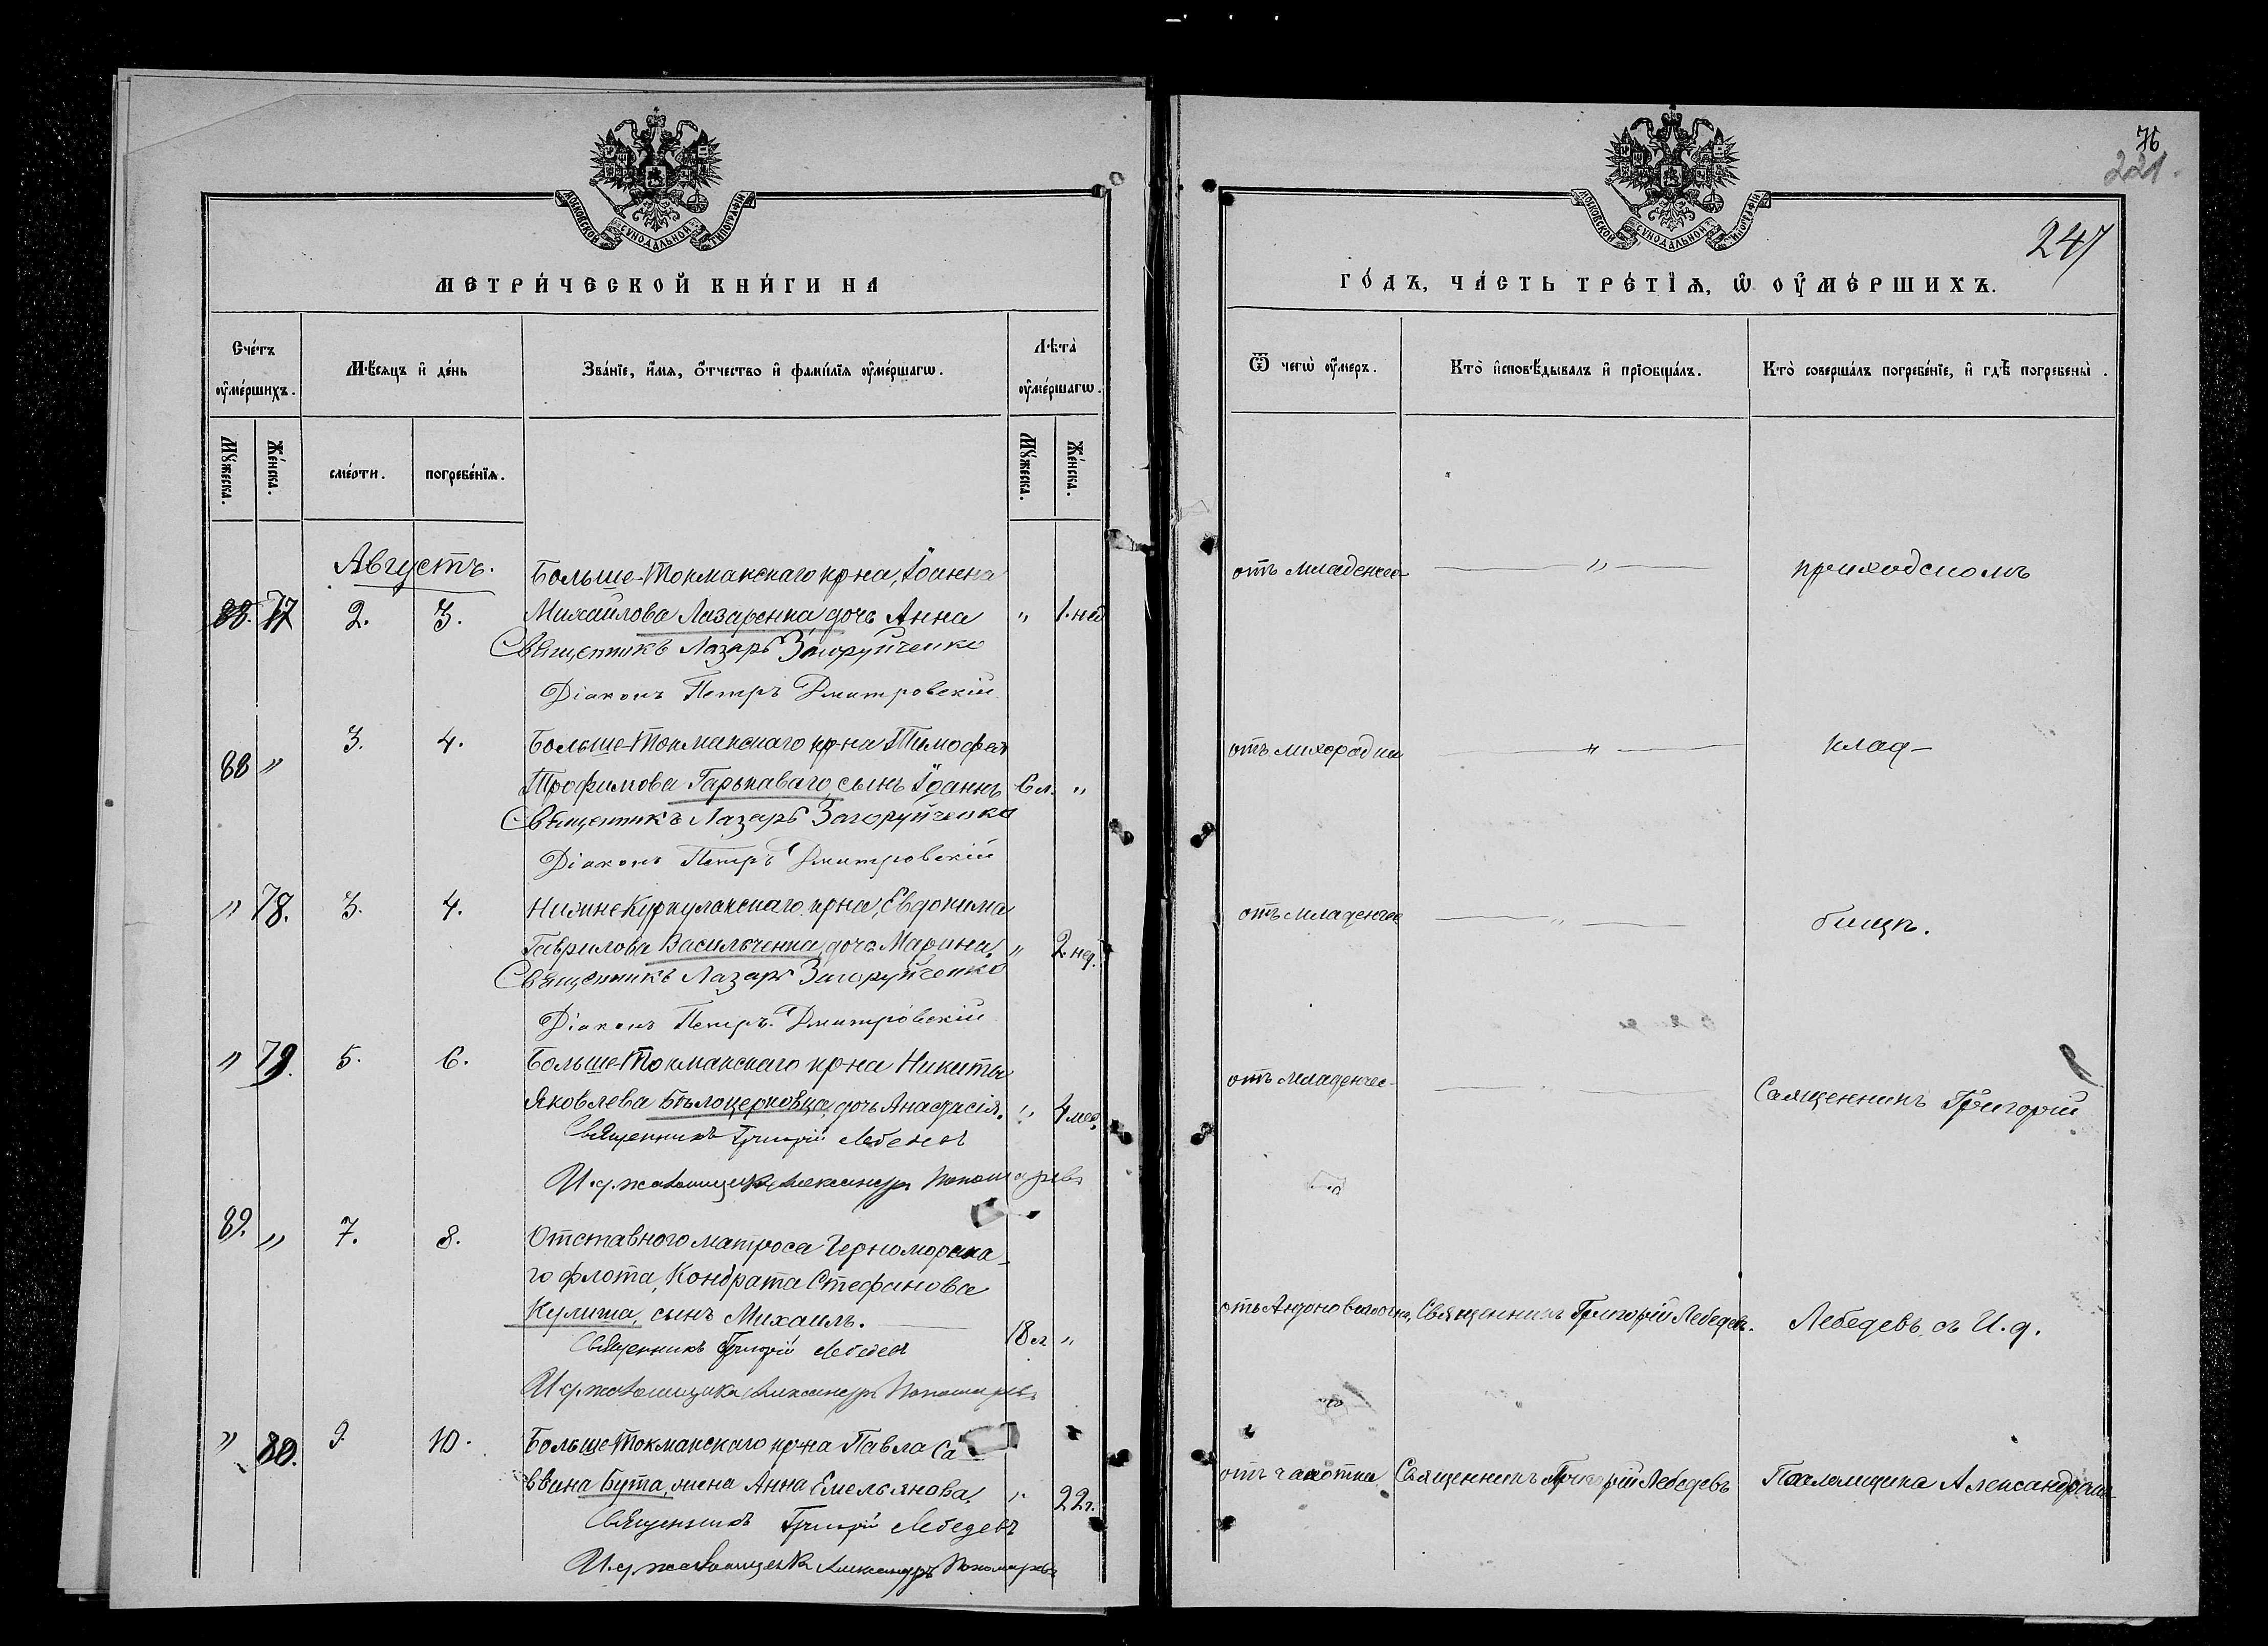 76
221.
247
МОСКОВСКОЙ СѴНОДАЛЬНОЙ ТИПОГРАФІИ
МЕТРИ́ЧЕСКОЙ КНИ́ГИ НА
Сче́тъ оу҆ме́ршихъ.
Мѣ́сяцъ и҆ де́нь
Зва́нїе, и҆́мя, ѻ҆́тчество и҆ фами́лїя оу҆ме́ршагѡ.
Лѣта̀ оу҆ме́ршагѡ.
Мꙋ́жеска.
Же́нска.
сме́рти.
погребе́нїя.
Мꙋ́жеска.
Же́нска.
Августъ.
Больше-Токмакскаго кр-на, Іоанна
88. 77 2. 3. Михайлова Лазаренка, дочь Анна " 1. нед
Священникъ Лазарь Загоруйченко
Діаконъ Петръ Дмитровскій
3. 4. Больше-Токмакскаго кр-на Тимофея
88 " Трофимова Гаркаваго, сынъ Іоаннъ 6 л. "
Священникъ Лазарь Загоруйченко
Діаконъ Петръ Дмитровскій
" 78. 3. 4. Нижне Куркулакскаго кр-на, Евдокима
Гаврилова Васильченка, дочь Марина, " 2 нед.
Священникъ Лазарь Загоруйченко
Діаконъ Петръ Дмитровскій
" 79. 5. 6. Больше-Токмакскаго кр-на Никиты
Яковлева Бѣлоцерковца, дочь Анастасія. " 4 мес,
Священникъ Григорій Лебедевъ
И. д. псаломщика Александръ Пономаревъ
89. " 7. 8. Отставного матроса Черноморска-
го флота, Кондрата Стефанова
Кулиша, сынъ Михаилъ.
Священникъ Григорій Лебедевъ 18 л. "
И д. псаломщика Александръ Пономаревъ
" 80. 9. 10. Больше-Токмакскаго кр-на Павла Са
ввина Бута, жена Анна Емельянова, " 22 г.
Священникъ Григорій Лебедевъ
И. д. псаломщика Александръ Пономаревъ
МОСКОВСКОЙ СѴНОДАЛЬНОЙ ТИПОГРАФІИ
ГО́ДЪ, ЧА́СТЬ ТРЕ́ТЇѦ, Ѡ҆ ОУ҆МЕ́РШИХЪ.
Ѿ чегѡ̀ оу҆́меръ.
Кто̀ и҆сповѣ́дывалъ и҆ прїобща́лъ.
Кто̀ соверша́лъ погребе́нїе, и҆ гдѣ̀ погребены̀.
отъ младенчес- " приходскомъ
отъ лихорадки " клад-
отъ младенчес " бищѣ.
отъ младенчес- " Священникъ Григорій
Священникъ Григорій Лебедевъ. Лебедевъ, съ И. д.
отъ чахотки Священникъ Григорій Лебедевъ Псаломщика Александром